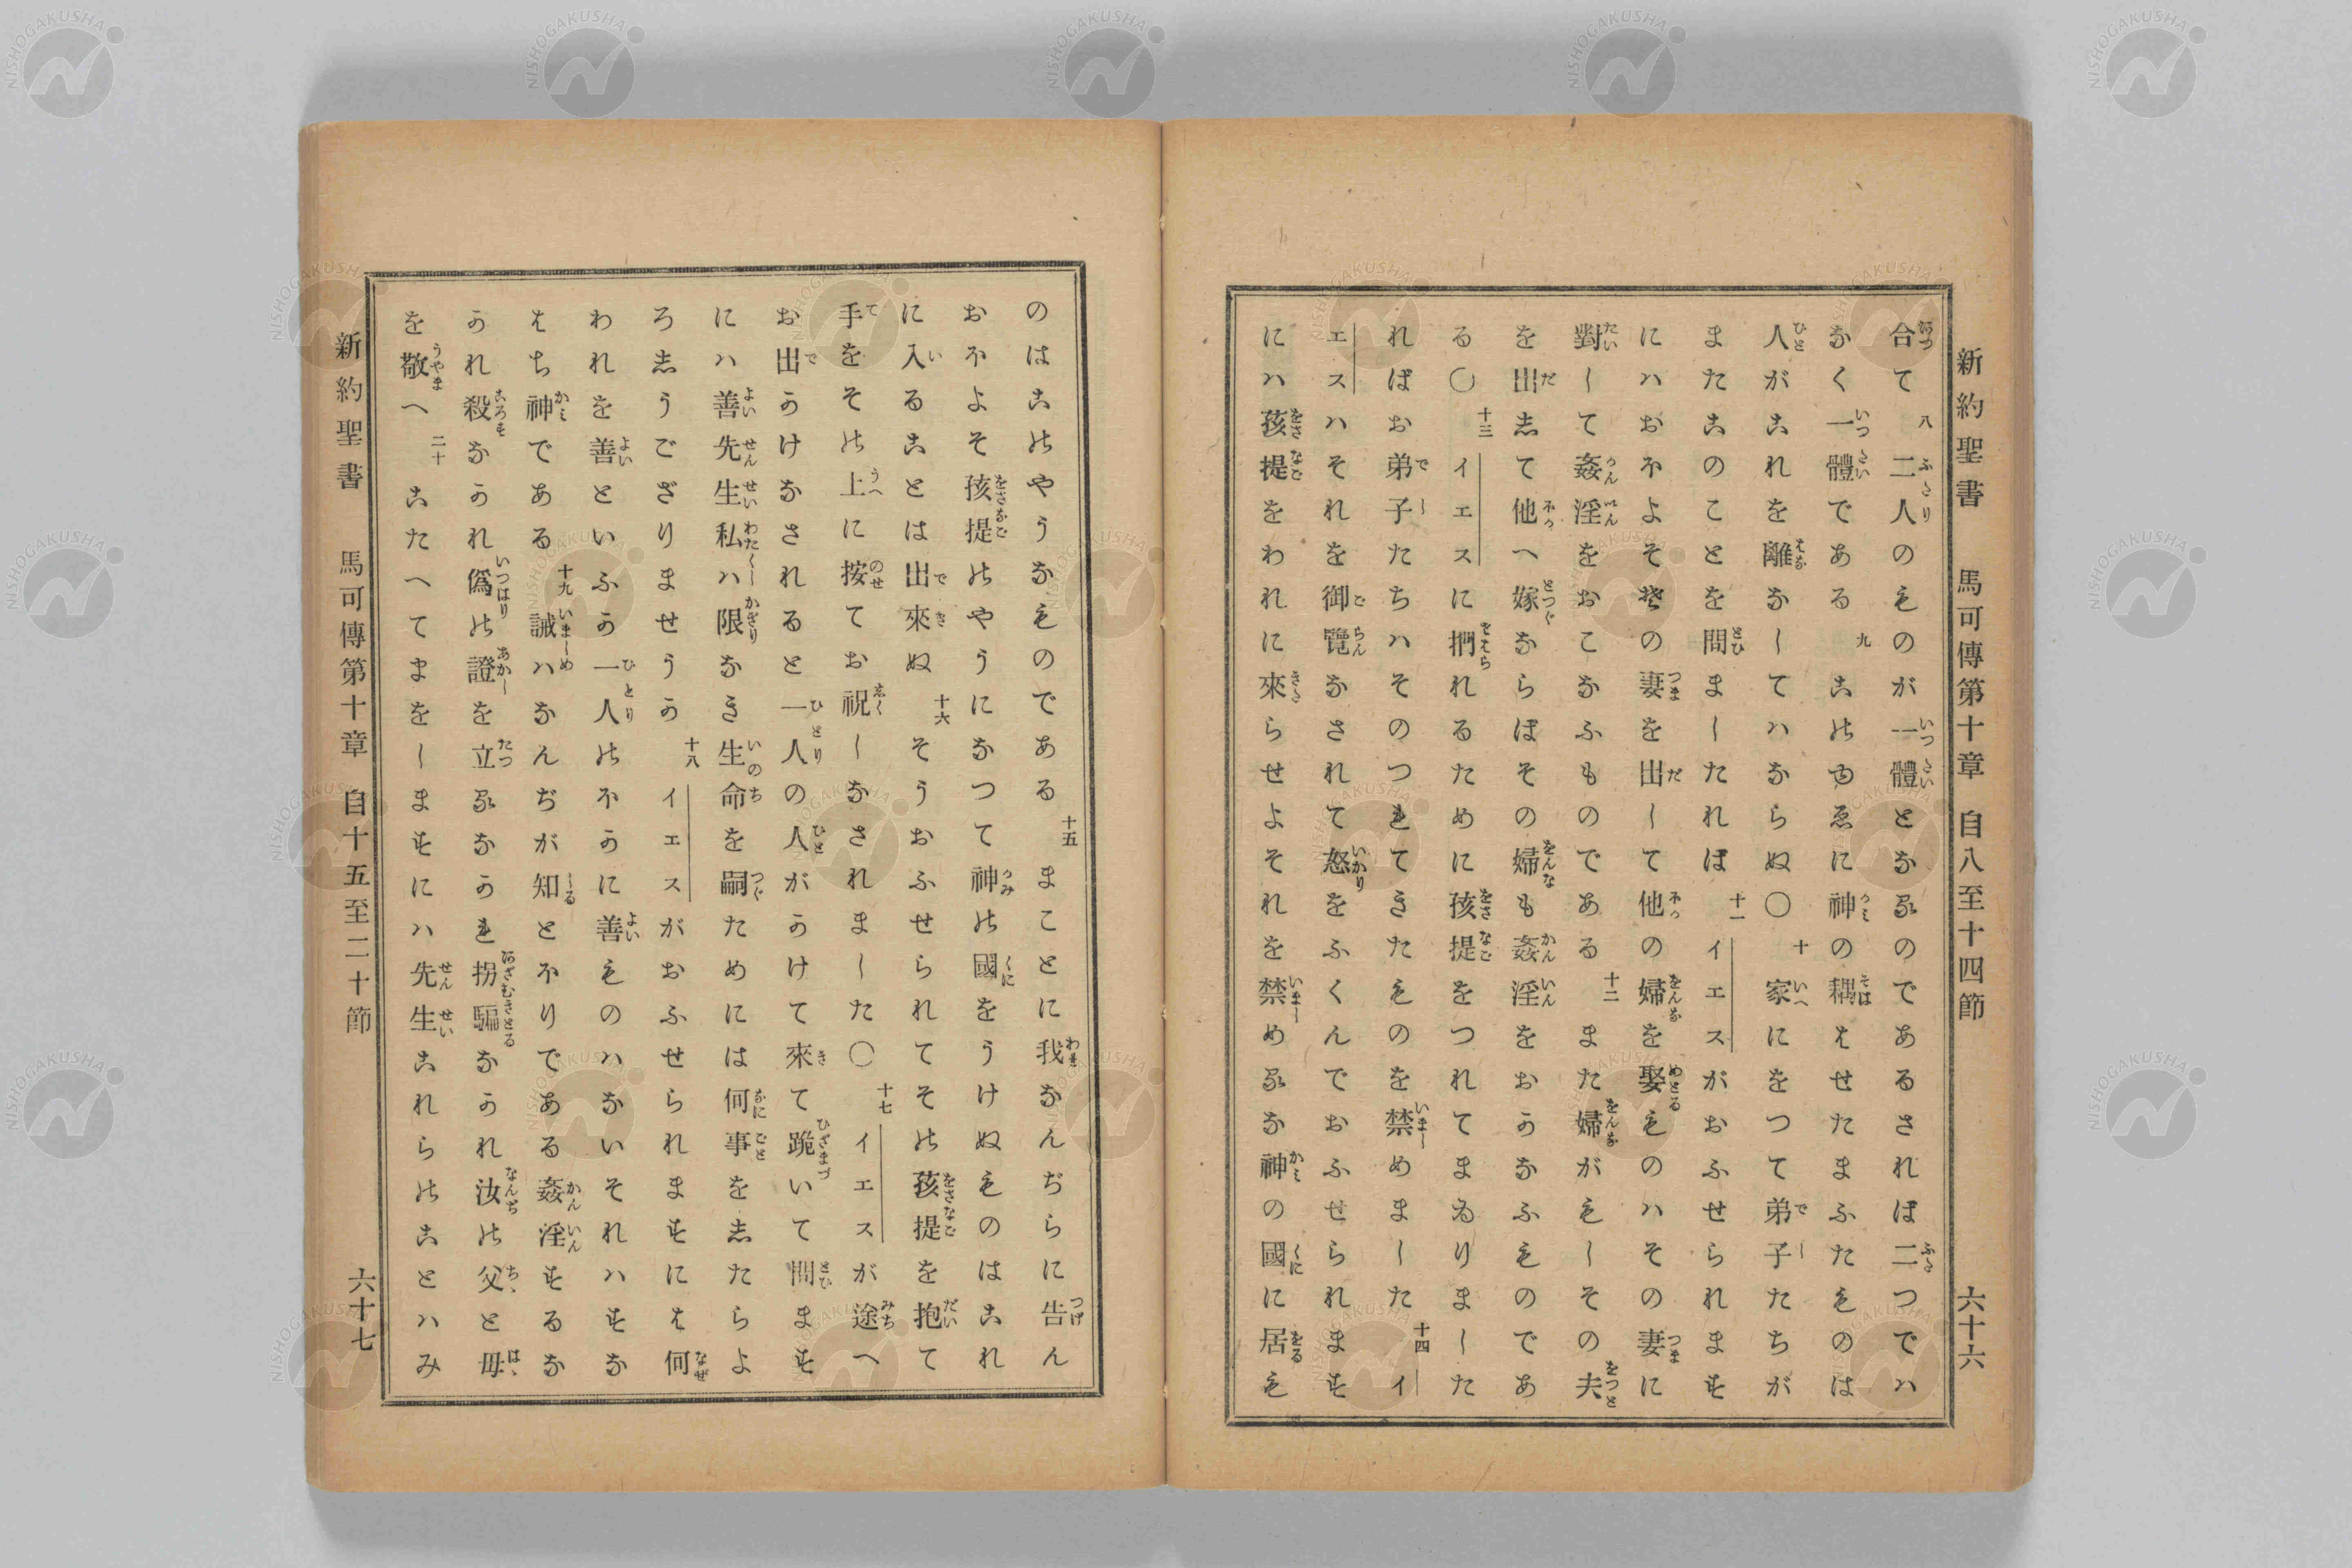 新約聖書　馬可傳第十章　自八至十四節　六十六
合て八二人のものが一體となるのであるされば二つでハ
なく一體である九このゆゑに神の耦はせたまふたものは
人がこれを離なしてハならぬ〇十家にをつて弟子たちが
またこのことを問ましたれば十一イエスがおふせられます
にハおほよそその妻を出して他の婦を娶ものハその妻に
對して姦淫をおこなふものである十二また婦がもしその夫
を出して他へ嫁ならばその婦も姦淫をおかなふものであ
る〇十三イエスに捫れるために孩提をつれてまゐりました
ればお弟子たちハそのつれてきたものを禁めました十四イ
エスハそれを御覽なされて怒をふくんでおふせられます
にハ孩提をわれに來らせよそれを禁めるな神の國に居も
のはこのやうなものである十五まことに我なんぢらに告ん
おほよそ孩提のやうになつて神の國をうけぬものはこれ
に入ることは出來ぬ十六そうおふせられてその孩提を抱て
手をその上に按てお祝しなされました〇十七イエスが途へ
お出かけなされると一人の人がかけて來て跪いて問ます
にハ善先生私ハ限なき生命を嗣ためには何事をしたらよ
ろしうござりませうか十八イエスがおふせられますには何
われを善といふか一人のほかに善ものハないそれハすな
はち神である十九誡ハなんぢが知とほりである姦淫するな
かれ殺すなかれ僞の證を立るなかれ拐騙なかれ汝の父と母
を敬へ二十こたへてまをしますにハ先生これらのことハみ
新約聖書　馬可傳第十章　自十五至二十節　六十七